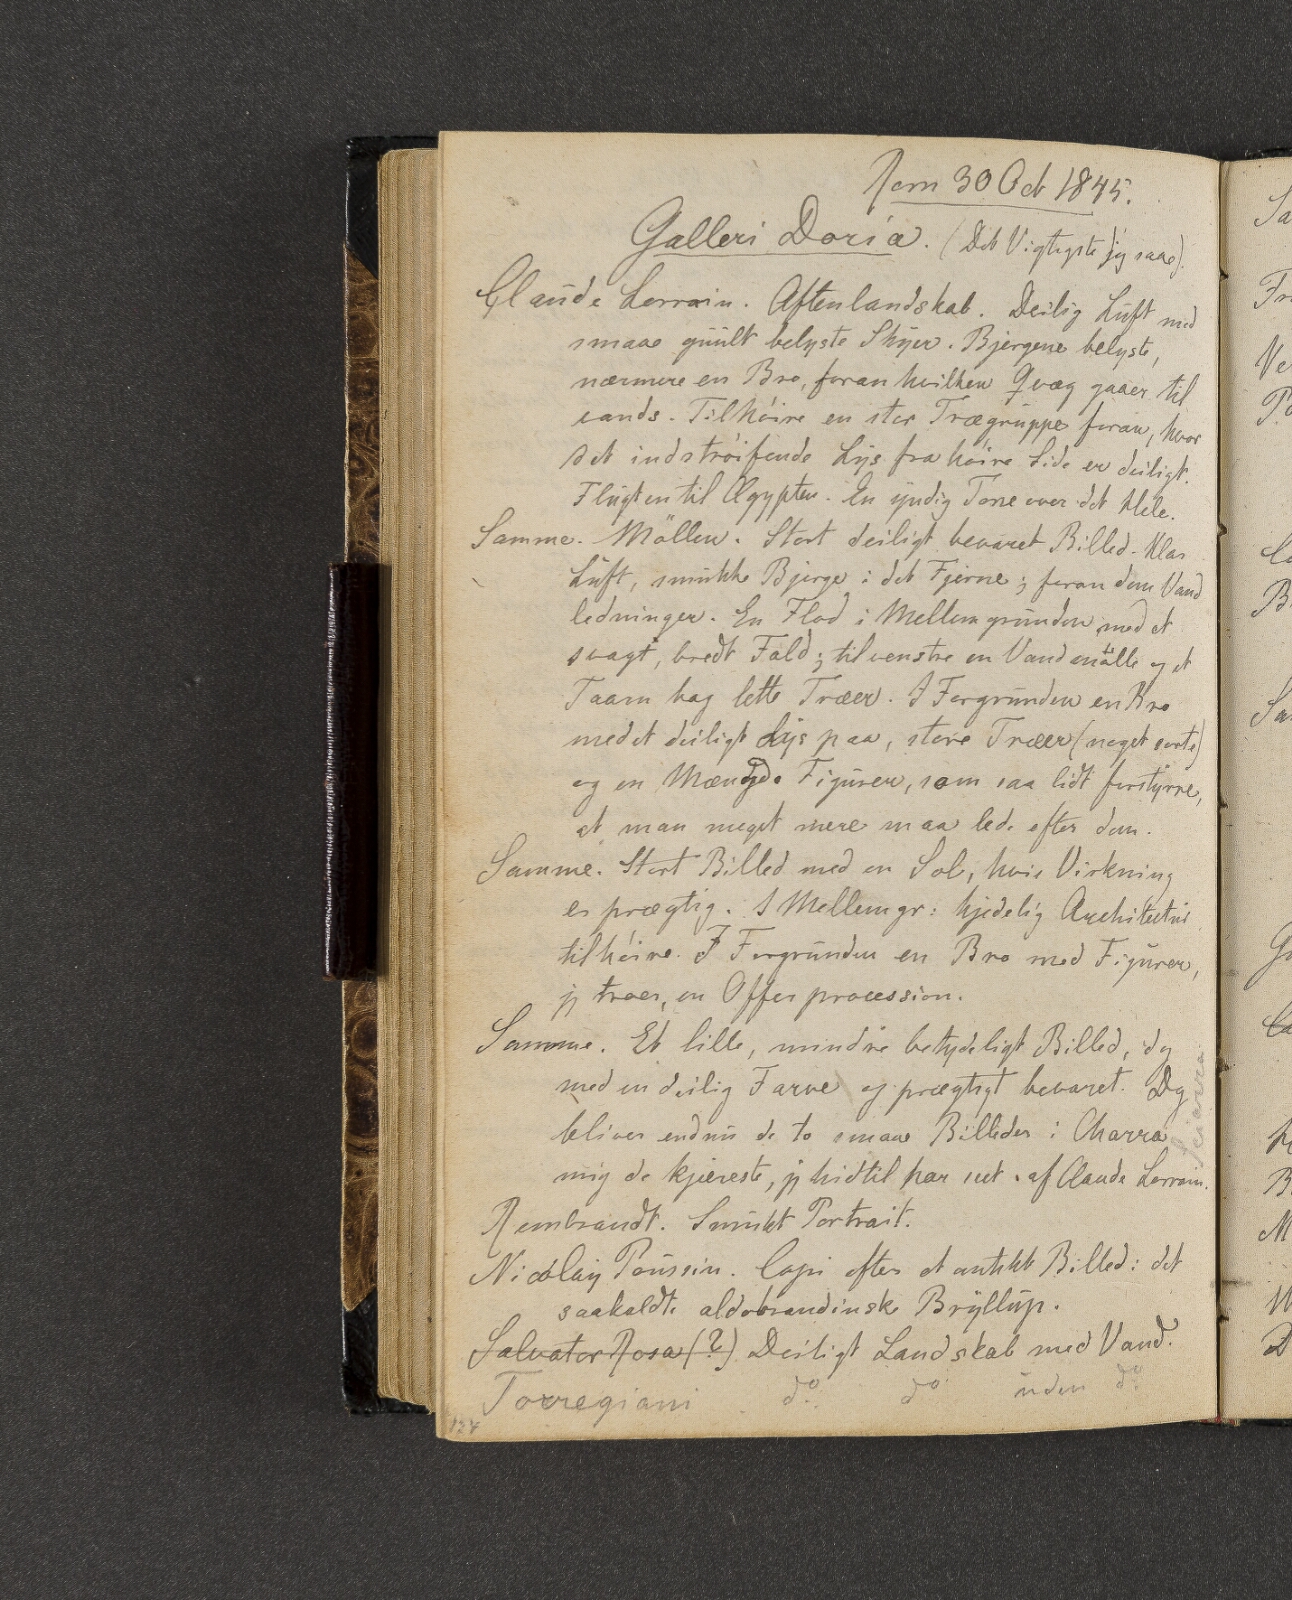 Rom 30 Oct 1845.
Galleri Doria. (Det Vigtigste jeg saae).
Claude Lorrain. Aftenlandskab. Deilig Luft med
smaae guult belyste Skyer. Bjergene belyste,
nærmere en Bro, foran hvilken Qvæg gaaer til
vands. Tilhöire en stor Trægruppe foran, hvor
det indströifende Lys fra höire Side er deiligt.
Flugten til Ægypten. En yndig Tone over det Hele.
Samme. Möllen. Stort deiligt bevaret Billed. Klar
Luft, smukke Bjerge i det Fjerne; foran dem Vand
ledninger. En Flod i Mellemgrunden med et
svagt, bredt Fald; tilvenstre en Vandmölle og et
Taarn bag lette Træer. I Forgrunden en Bro
med et deiligt Lys paa, store Træer (noget sorte)
og en Mængde Figurer, som saa lidt forstyrre,
at man meget mere maa lede efter dem.
Samme. Stort Billed med en Sol, hvis Virkning
er prægtig. I Mellemgr: kjedelig Architectur
tilhöire. I Forgrunden en Bro med Figurer,
jeg troer, en Offerprocession.
Samme. Et lille, mindre betydeligt Billed, dog
med en deilig Farve og prægtigt bevaret. Dog
bliver endnu de to smaae Billeder i Charra
Sciarra
mig de kjæreste, jeg hidtil har seet af Claude Lorrain.
Rembrandt. Smukt Portrait.
Nicolay Poussin. Copi efter et antikt Billed: det
saakaldte aldobrandinske Bryllup.
Salvator Rosa (?) Deiligt Landskab med Vand.
Torregiani do. do uden do.
124